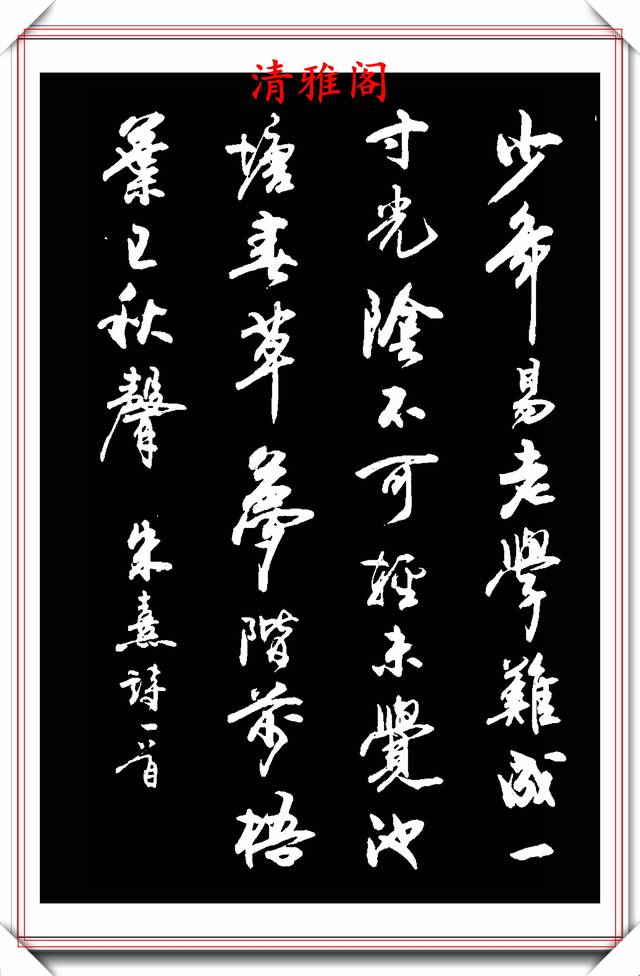 清雅阁
少年易老學難成一
寸光陰不可輕未覺池
塘春草夢階前梧
葉已秋聲
朱熹詩一首